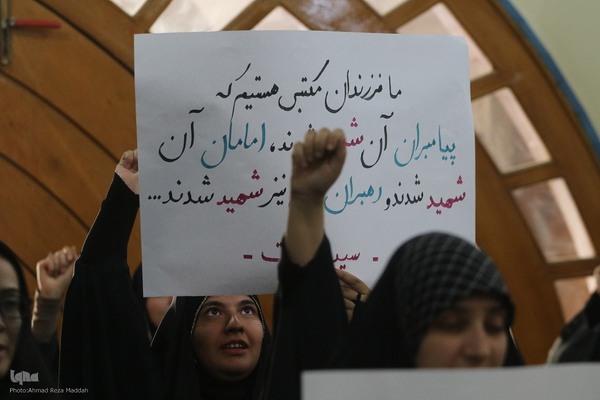 ما فرزندان مکتبی هستیم که
پیامبران آن شهید شدند، امامان آن
شهید شدند و رهبران نیز شهید شدند...
ایکنا
Photo:Ahmad Reza Maddah